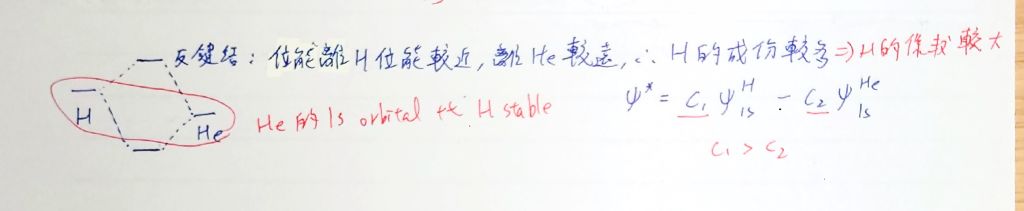 反鍵結：位能離H位能較近，離He較遠，∴ H的成份較多⇒H的係數較大
H
He
He的1s orbital 比 H stable
ψ* = C₁ψ₁ₛᴴ - C₂ψ₁ₛᴴᵉ
C₁ > C₂